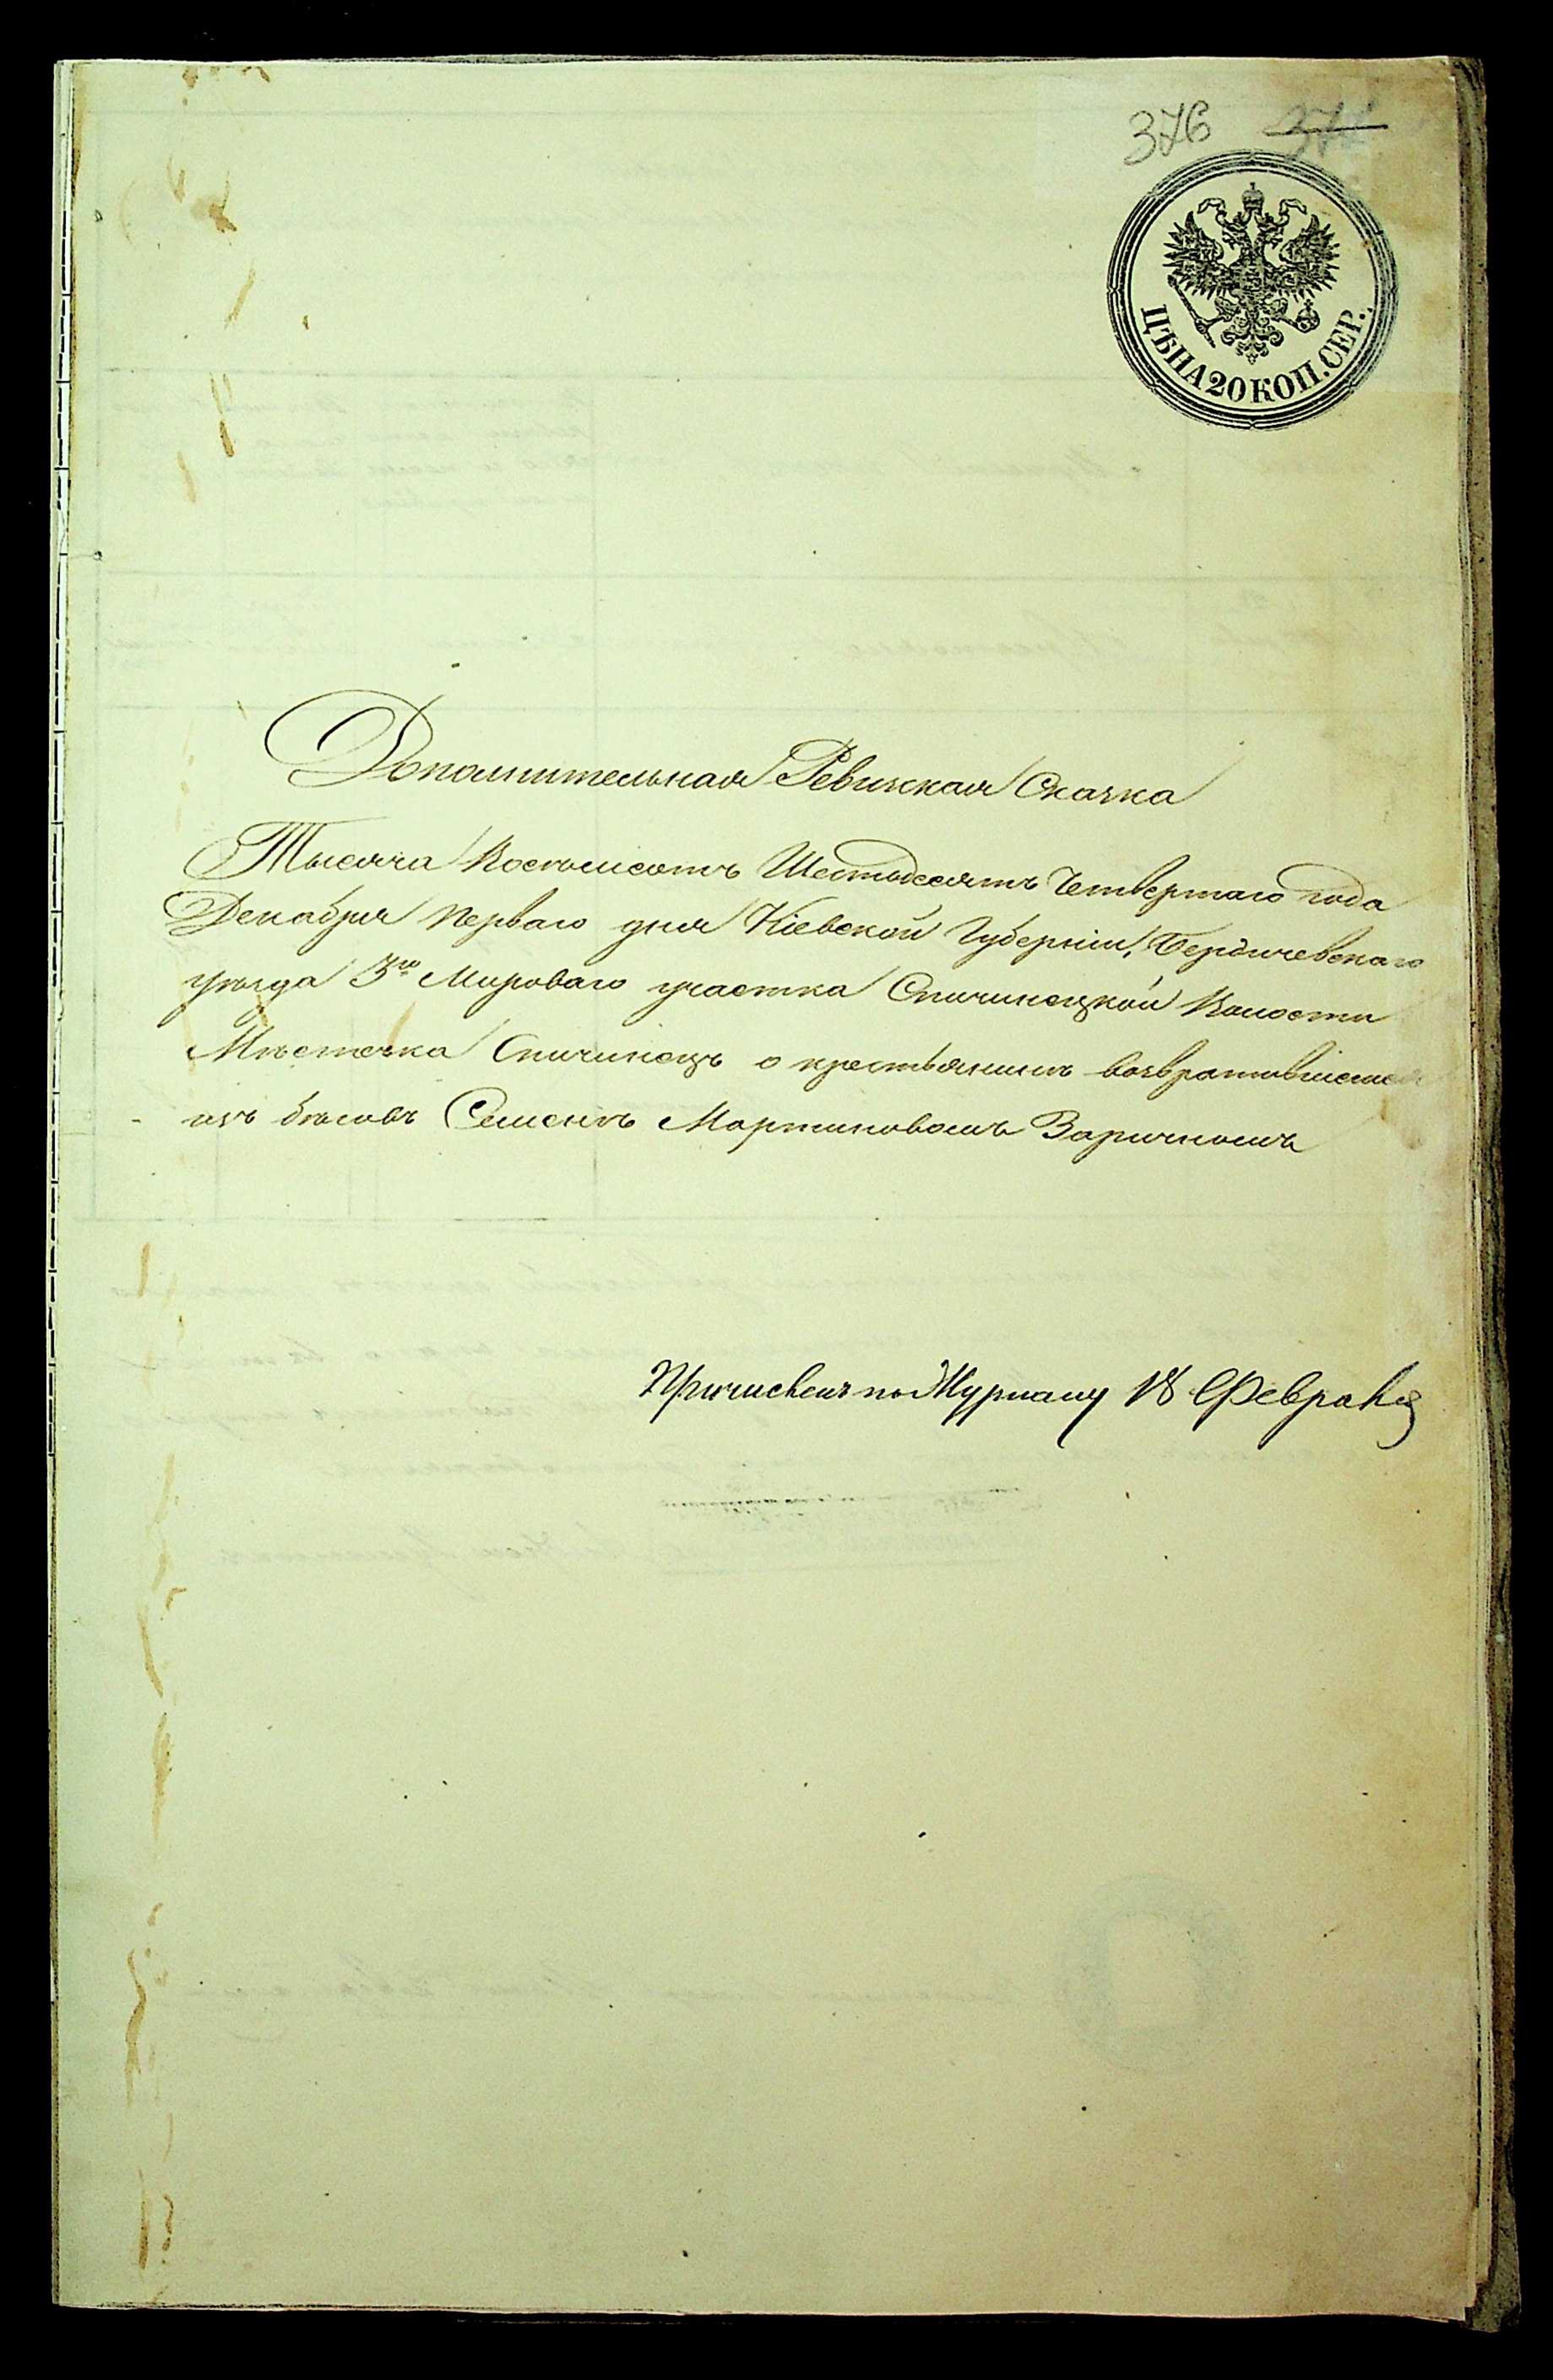 376 371
ЦѢНА 20 КОП. СЕР.
Дополнительная Ревизская Сказка
Тысяча Восемьсотъ Шестьдесятъ Четвертаго года
Декабря Перваго дня Кіевской Губерніи, Бердичевскаго
уѣзда 3го Мироваго участка Спичинецкой Волости
Мѣстечка Спичинецъ о крестьянинѣ возвратившемся
изъ бѣговъ Семенѣ Мартиновомъ Заричномъ
Причисленъ по Журналу 18 Февраля